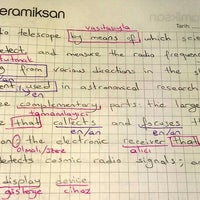 eramiksan
Tarih:
vasıtasıyla
telescope by means of which scie
and measure the radio frequen
from various directions in the s
used in astronomical
complementary parts: the larg
tamamlayıcı
that collects and focuses
en/an en/an
the electronic receiver that
alıcı
detects cosmic radio signals;
display device
gösterge cihaz